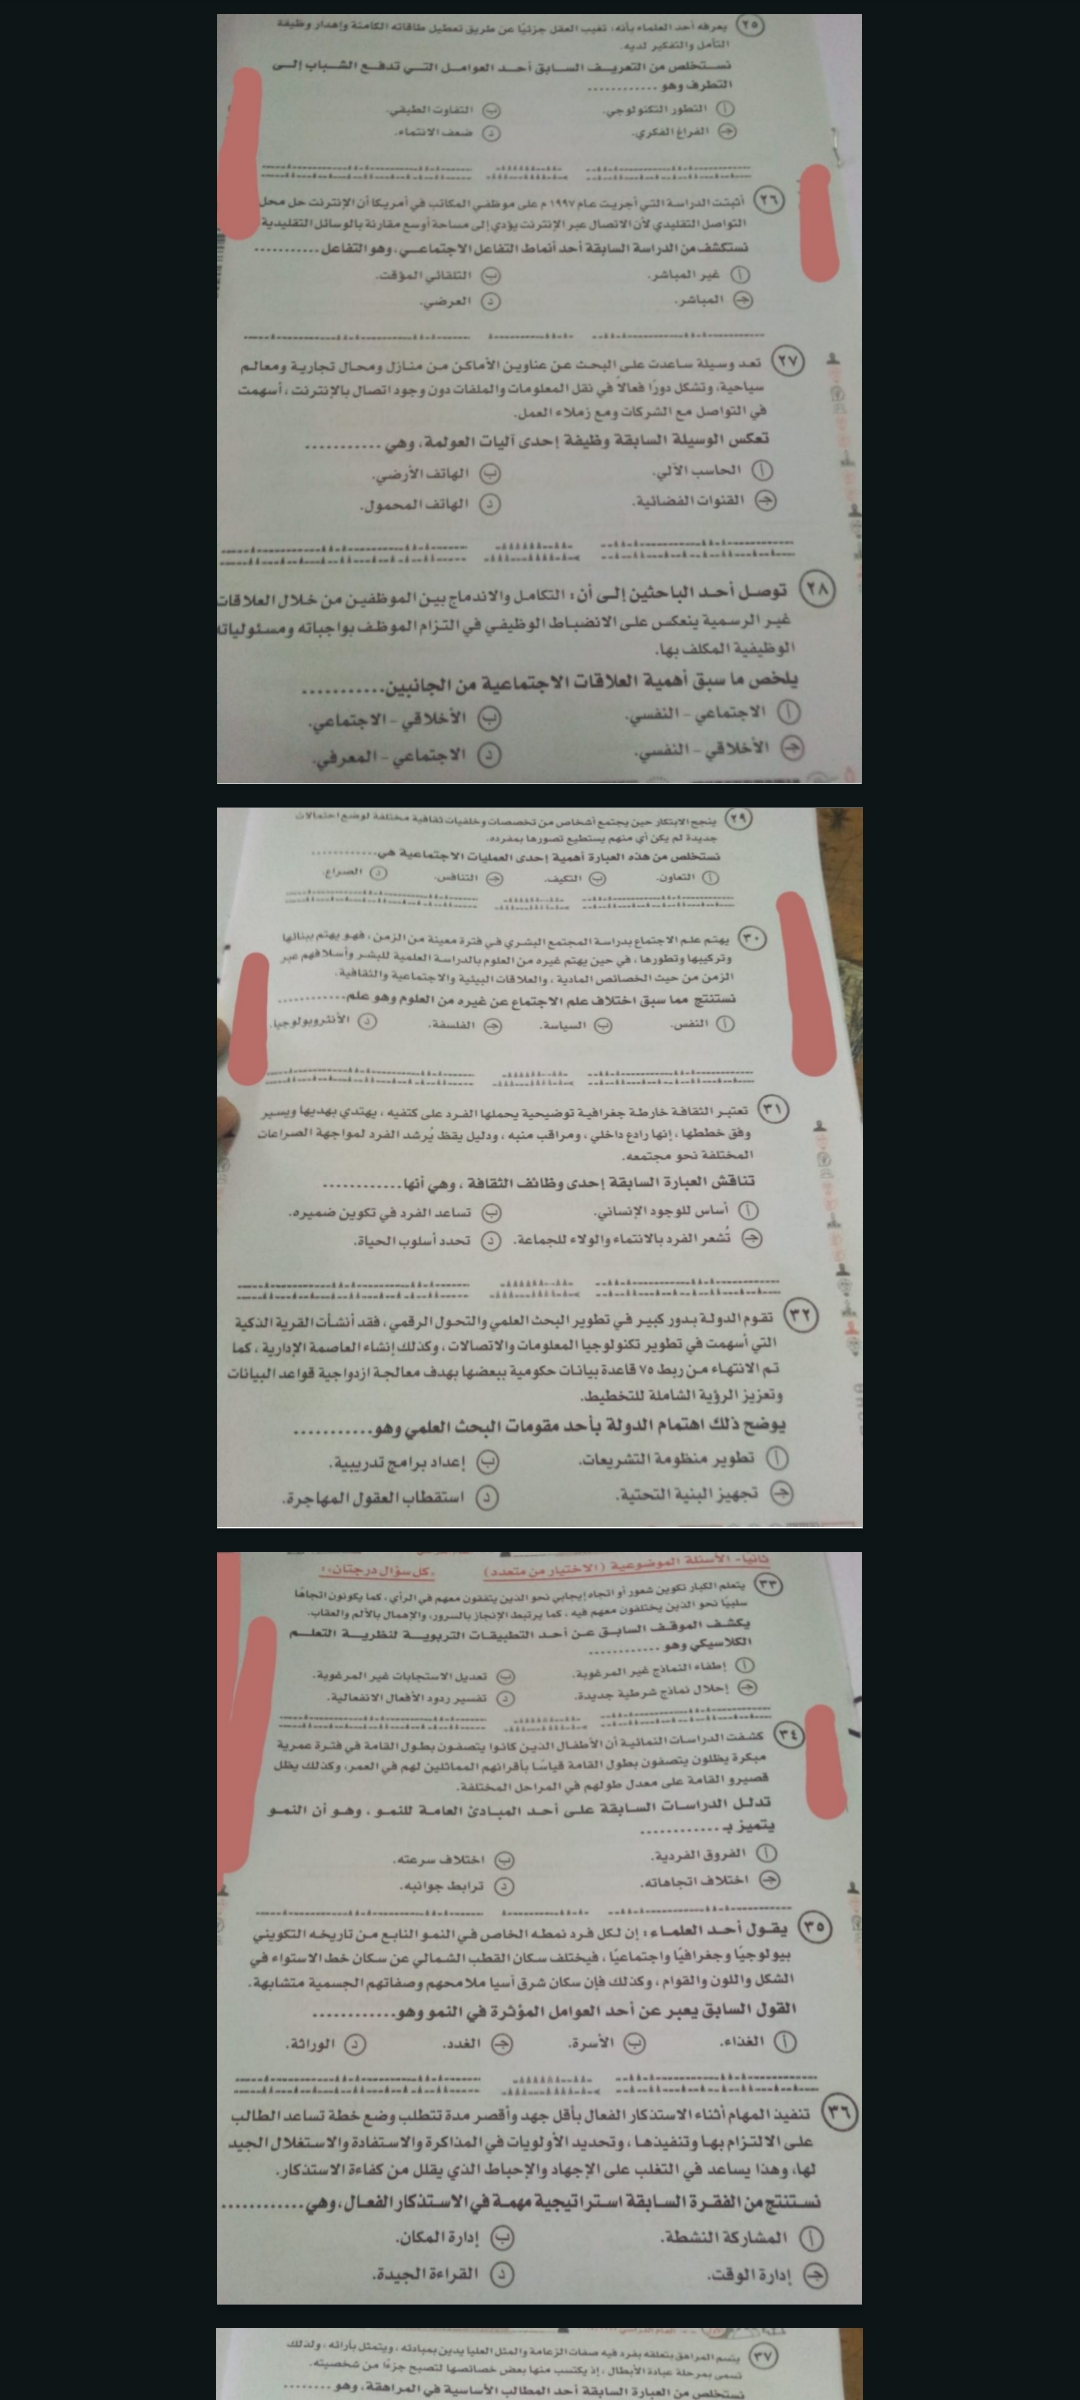 ٢٥ يعرفه أحد العلماء بأنه: تغيب العقل جزئيًا عن طريق تعطيل طاقاته الكامنة وإهدار وظيفة
التأمل والتفكير لديه.
نستخلص من التعريف السابق أحد العوامل التي تدفع الشباب إلى
التطرف وهو ............
أ التطور التكنولوجي. ب التفاوت الطبقي.
جـ الفراغ الفكري. د ضعف الانتماء.
٢٦ أثبتت الدراسة التي أجريت عام ١٩٩٧ م على موظفي المكاتب في أمريكا أن الإنترنت حل محل
التواصل التقليدي لأن الاتصال عبر الإنترنت يؤدي إلى مساحة أوسع مقارنة بالوسائل التقليدية
نستكشف من الدراسة السابقة أحد أنماط التفاعل الاجتماعي، وهو التفاعل ............
أ غير المباشر. ب التلقائي المؤقت.
جـ المباشر. د العرضي.
٢٧ تعد وسيلة ساعدت على البحث عن عناوين الأماكن من منازل ومحال تجارية ومعالم
سياحية، وتشكل دورًا فعالاً في نقل المعلومات والملفات دون وجود اتصال بالإنترنت، أسهمت
في التواصل مع الشركات ومع زملاء العمل.
تعكس الوسيلة السابقة وظيفة إحدى آليات العولمة، وهي ............
أ الحاسب الآلي. ب الهاتف الأرضي.
جـ القنوات الفضائية. د الهاتف المحمول.
٢٨ توصل أحد الباحثين إلى أن: التكامل والاندماج بين الموظفين من خلال العلاقات
غير الرسمية ينعكس على الانضباط الوظيفي في التزام الموظف بواجباته ومسئولياته
الوظيفية المكلف بها.
يلخص ما سبق أهمية العلاقات الاجتماعية من الجانبين............
أ الاجتماعي - النفسي. ب الأخلاقي - الاجتماعي.
جـ الأخلاقي - النفسي. د الاجتماعي - المعرفي.
٢٩ ينجح الابتكار حين يجتمع أشخاص من تخصصات وخلفيات ثقافية مختلفة لوضع احتمالات
جديدة لم يكن أي منهم يستطيع تصورها بمفرده.
نستخلص من هذه العبارة أهمية إحدى العمليات الاجتماعية هي............
أ التعاون. ب التكيف. جـ التنافس. د الصراع.
٣٠ يهتم علم الاجتماع بدراسة المجتمع البشري في فترة معينة من الزمن، فهو يهتم ببنائها
وتركيبها وتطورها، في حين يهتم غيره من العلوم بالدراسة العلمية للبشر وأسلافهم عبر
الزمن من حيث الخصائص المادية، والعلاقات البيئية والاجتماعية والثقافية.
نستنتج مما سبق اختلاف علم الاجتماع عن غيره من العلوم وهو علم............
أ النفس. ب السياسة. جـ الفلسفة. د الأنثروبولوجيا.
٣١ تعتبر الثقافة خارطة جغرافية توضيحية يحملها الفرد على كتفيه، يهتدي بهديها ويسير
وفق خططها، إنها رادع داخلي، ومراقب منبه، ودليل يقظ يُرشد الفرد لمواجهة الصراعات
المختلفة نحو مجتمعه.
تناقش العبارة السابقة إحدى وظائف الثقافة، وهي أنها............
أ أساس للوجود الإنساني. ب تساعد الفرد في تكوين ضميره.
جـ تُشعر الفرد بالانتماء والولاء للجماعة. د تحدد أسلوب الحياة.
٣٢ تقوم الدولة بدور كبير في تطوير البحث العلمي والتحول الرقمي، فقد أنشأت القرية الذكية
التي أسهمت في تطوير تكنولوجيا المعلومات والاتصالات، وكذلك إنشاء العاصمة الإدارية، كما
تم الانتهاء من ربط ٧٥ قاعدة بيانات حكومية ببعضها بهدف معالجة ازدواجية قواعد البيانات
وتعزيز الرؤية الشاملة للتخطيط.
يوضح ذلك اهتمام الدولة بأحد مقومات البحث العلمي وهو............
أ تطوير منظومة التشريعات. ب إعداد برامج تدريبية.
جـ تجهيز البنية التحتية. د استقطاب العقول المهاجرة.
ثانيًا- الأسئلة الموضوعية (الاختيار من متعدد) «كل سؤال درجتان»:
٣٣ يتعلم الكبار تكوين شعور أو اتجاه إيجابي نحو الذين يتفقون معهم في الرأي، كما يكونون اتجاهًا
سلبيًا نحو الذين يختلفون معهم فيه، كما يرتبط الإنجاز بالسرور، والإهمال بالألم والعقاب.
يكشف الموقف السابق عن أحد التطبيقات التربوية لنظرية التعلم
الكلاسيكي وهو ............
أ إطفاء النماذج غير المرغوبة. ب تعديل الاستجابات غير المرغوبة.
جـ إحلال نماذج شرطية جديدة. د تفسير ردود الأفعال الانفعالية.
٣٤ كشفت الدراسات النمائية أن الأطفال الذين كانوا يتصفون بطول القامة في فترة عمرية
مبكرة يظلون يتصفون بطول القامة قياسًا بأقرانهم المماثلين لهم في العمر، وكذلك يظل
قصيرو القامة على معدل طولهم في المراحل المختلفة.
تدلل الدراسات السابقة على أحد المبادئ العامة للنمو، وهو أن النمو
يتميز بـ ............
أ الفروق الفردية. ب اختلاف سرعته.
جـ اختلاف اتجاهاته. د ترابط جوانبه.
٣٥ يقول أحد العلماء: إن لكل فرد نمطه الخاص في النمو النابع من تاريخه التكويني
بيولوجيًا وجغرافيًا واجتماعيًا، فيختلف سكان القطب الشمالي عن سكان خط الاستواء في
الشكل واللون والقوام، وكذلك فإن سكان شرق آسيا ملامحهم وصفاتهم الجسمية متشابهة.
القول السابق يعبر عن أحد العوامل المؤثرة في النمو وهو............
أ الغذاء. ب الأسرة. جـ الغدد. د الوراثة.
٣٦ تنفيذ المهام أثناء الاستذكار الفعال بأقل جهد وأقصر مدة تتطلب وضع خطة تساعد الطالب
على الالتزام بها وتنفيذها، وتحديد الأولويات في المذاكرة والاستفادة والاستغلال الجيد
لها، وهذا يساعد في التغلب على الإجهاد والإحباط الذي يقلل من كفاءة الاستذكار.
نستنتج من الفقرة السابقة استراتيجية مهمة في الاستذكار الفعال، وهي............
أ المشاركة النشطة. ب إدارة المكان.
جـ إدارة الوقت. د القراءة الجيدة.
٣٧ يتسم المراهق بتعلقه بفرد فيه صفات الزعامة والمثل العليا يدين بمبادئه، ويتمثل بآرائه، ولذلك
تسمى بمرحلة عبادة الأبطال، إذ يكتسب منها بعض خصائصها لتصبح جزءًا من شخصيته.
نستخلص من العبارة السابقة أحد المطالب الأساسية في المراهقة، وهو ........